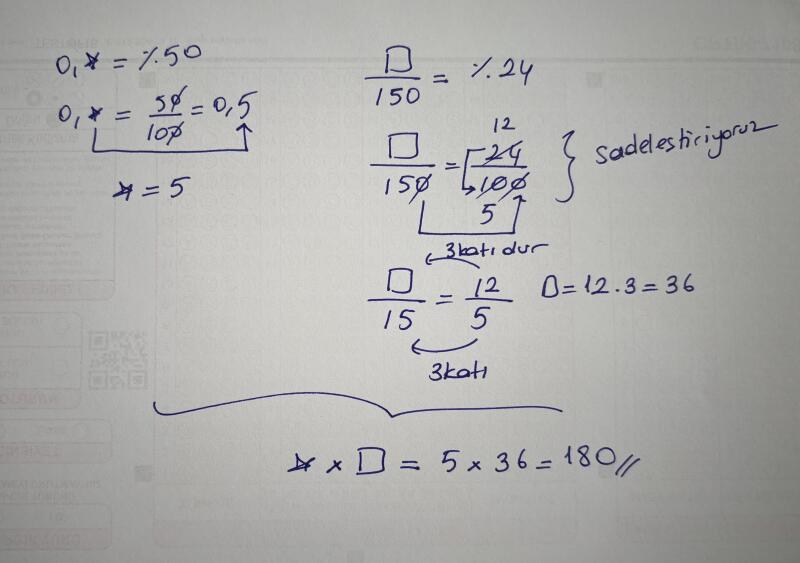 0,* = %50
0,* = 50/100 = 0,5
* = 5
□/150 = %24
12
□/150 = 24/100 } sadeleştiriyoruz
5
3 katıdır
□/15 = 12/5 □ = 12.3 = 36
3 katı
* x □ = 5 x 36 = 180//